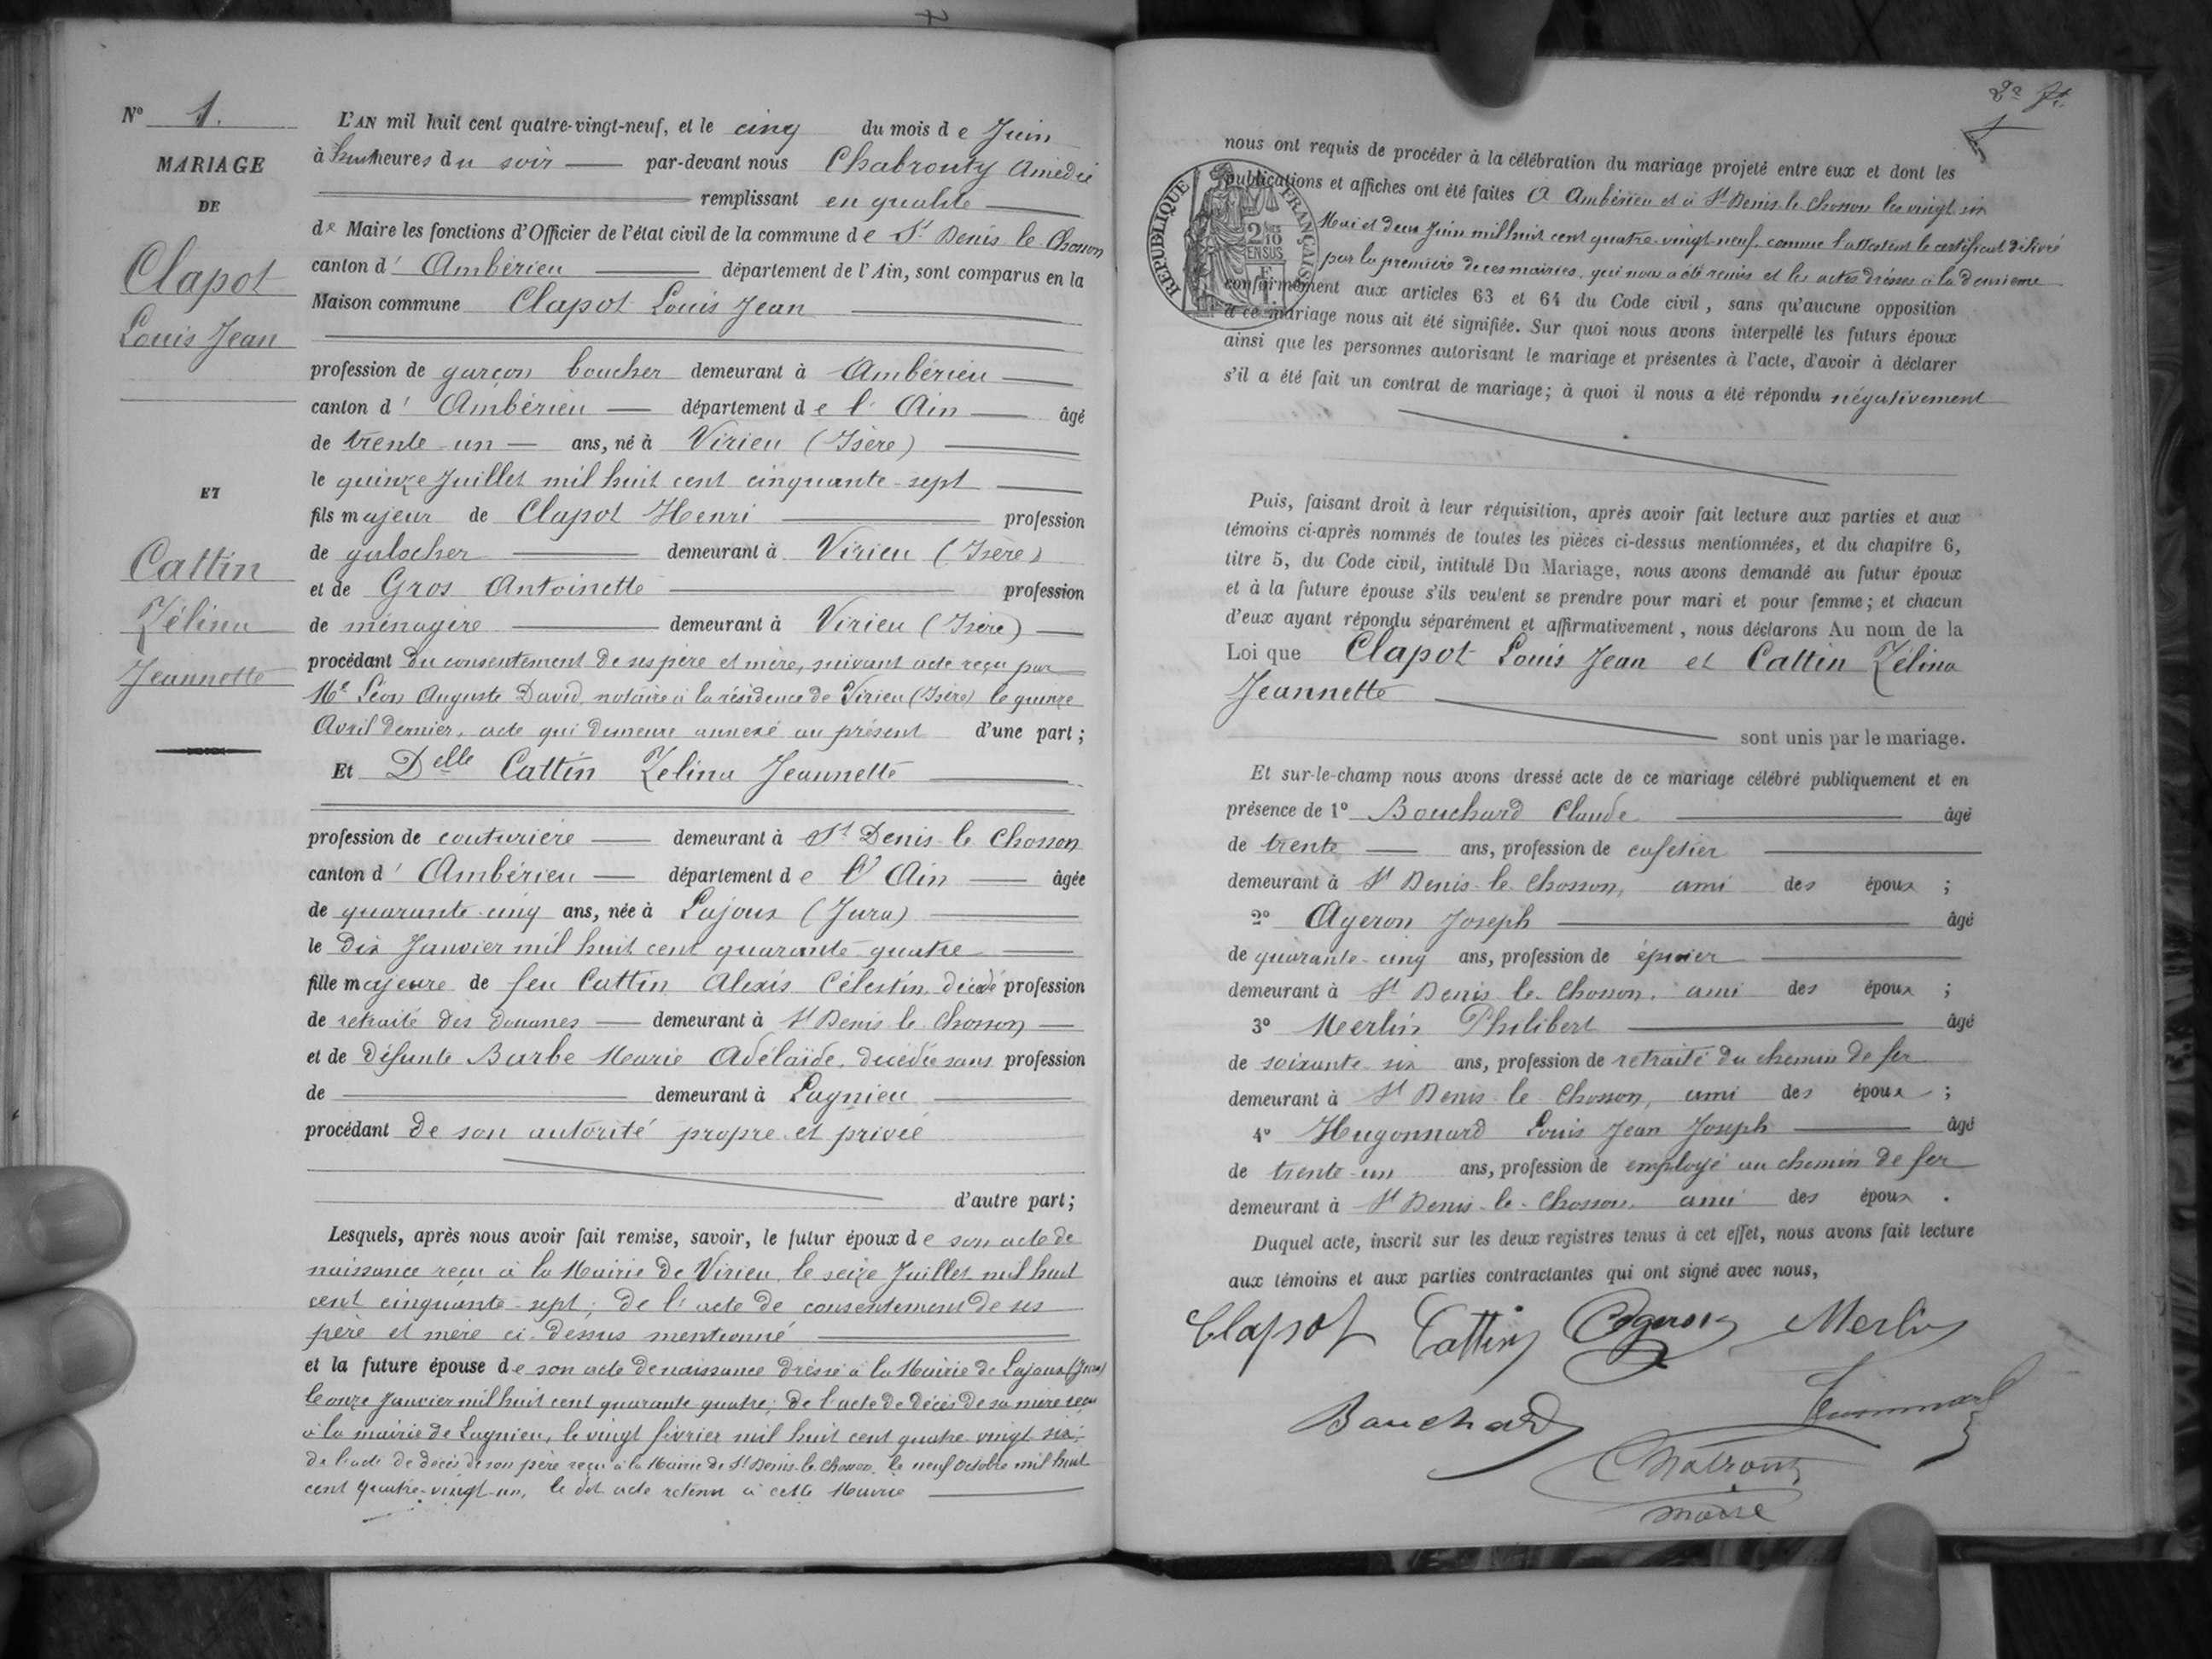 N° 1.
MARIAGE
DE
Clapot
Louis Jean
ET
Cattin
Zélina
Jeannette
L'AN mil huit cent quatre-vingt-neuf, et le cinq du mois de Juin
à huit heures du soir par-devant nous Chabrouty Amédée
remplissant en qualité
de Maire les fonctions d'Officier de l'état civil de la commune de St Denis le Chosson
canton d' Ambérieu département de l'Ain, sont comparus en la
Maison commune Clapot Louis Jean
profession de garçon boucher demeurant à Ambérieu
canton d' Ambérieu département de l' Ain âgé
de trente-un ans, né à Virieu (Isère)
le quinze Juillet mil huit cent cinquante-sept
fils majeur de Clapot Henri profession
de galocher demeurant à Virieu (Isère)
et de Gros Antoinette profession
de ménagère demeurant à Virieu (Isère)
procédant du consentement de ses père et mère, suivant acte reçu par
Me Léon Auguste David, notaire à la résidence de Virieu (Isère) le quinze
Avril dernier, acte qui demeure annexé au présent d'une part;
Et Delle Cattin Zelina Jeannette
profession de couturière demeurant à St Denis le Chosson
canton d' Ambérieu département de l' Ain âgée
de quarante-cinq ans, née à Lajoux (Jura)
le dix Janvier mil huit cent quarante-quatre
fille majeure de feu Cattin Alexis Célestin, décédé profession
de retraité des douanes demeurant à St Denis le Chosson
et de défunte Barbe Marie Adélaïde, décédée sans profession
de demeurant à Lagnieu
procédant de son autorité propre et privée
d'autre part;
Lesquels, après nous avoir fait remise, savoir, le futur époux de son acte de
naissance reçu à la Mairie de Virieu, le seize Juillet mil huit
cent cinquante-sept; de l'acte de consentement de ses
père et mère ci-dessus mentionné
et la future épouse de son acte de naissance dressé à la Mairie de Lajoux (Jura)
le onze Janvier mil huit cent quarante quatre; de l'acte de décès de sa mère reçu
à la mairie de Lagnieu, le vingt février mil huit cent quatre-vingt-six;
de l'acte de décès de son père reçu à la Mairie de St Denis-le-Chosson, le neuf Octobre mil huit
cent quatre-vingt-un, le dit acte retenu à cette Mairie
2e ft.
nous ont requis de procéder à la célébration du mariage projeté entre eux et dont les
publications et affiches ont été faites à Ambérieu et à St Denis-le-Chosson les vingt six
Mai et deux Juin mil huit cent quatre-vingt-neuf, comme l'attestent le certificat délivré
par la première de ces mairies, qui nous a été remis et les actes dressés à la deuxième
conformément aux articles 63 et 64 du Code civil, sans qu'aucune opposition
à ce mariage nous ait été signifiée. Sur quoi nous avons interpellé les futurs époux
ainsi que les personnes autorisant le mariage et présentes à l'acte, d'avoir à déclarer
s'il a été fait un contrat de mariage; à quoi il nous a été répondu négativement
REPUBLIQUE FRANÇAISE
2/10 EN SUS
Puis, faisant droit à leur réquisition, après avoir fait lecture aux parties et aux
témoins ci-après nommés de toutes les pièces ci-dessus mentionnées, et du chapitre 6,
titre 5, du Code civil, intitulé Du Mariage, nous avons demandé au futur époux
et à la future épouse s'ils veulent se prendre pour mari et pour femme; et chacun
d'eux ayant répondu séparément et affirmativement, nous déclarons Au nom de la
Loi que Clapot Louis Jean et Cattin Zélina
Jeannette
sont unis par le mariage.
Et sur-le-champ nous avons dressé acte de ce mariage célébré publiquement et en
présence de 1° Bouchard Claude âgé
de trente ans, profession de cafetier
demeurant à St Denis-le-Chosson, ami des époux ;
2° Ageron Joseph âgé
de quarante-cinq ans, profession de épicier
demeurant à St Denis le Chosson, ami des époux ;
3° Merlin Philibert âgé
de soixante six ans, profession de retraité du chemin de fer
demeurant à St Denis le Chosson, ami des époux ;
4° Hugonnard Louis Jean Joseph âgé
de trente-un ans, profession de employé au chemin de fer
demeurant à St Denis-le-Chosson, ami des époux .
Duquel acte, inscrit sur les deux registres tenus à cet effet, nous avons fait lecture
aux témoins et aux parties contractantes qui ont signé avec nous,
Clapot Cattin Ageron Merlin
Bouchard
Chabrouty
maire